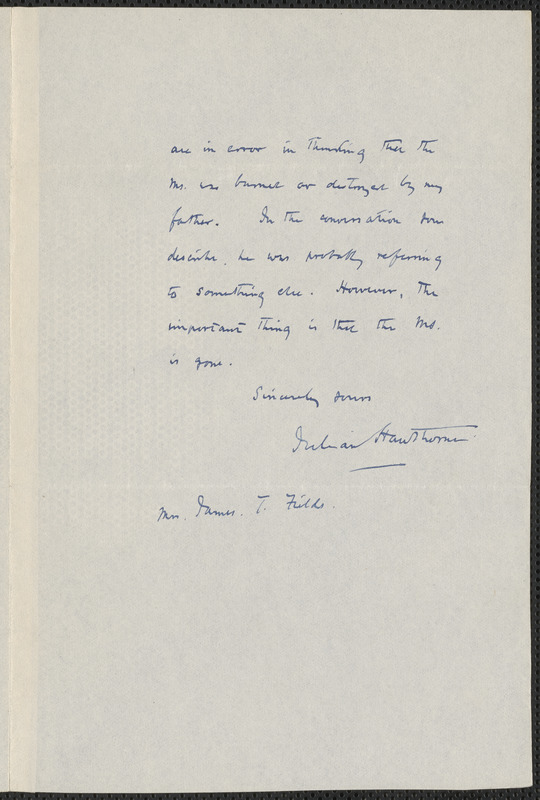 are in error in thinking that the
Ms. was burnet or destroyed by my
father. In the conversation you
describe, he was probably referring
to something else. However, the
important thing is that the Ms.
is gone.
Sincerely yours
Julian Hawthorne.
Mrs. James. T. Fields.